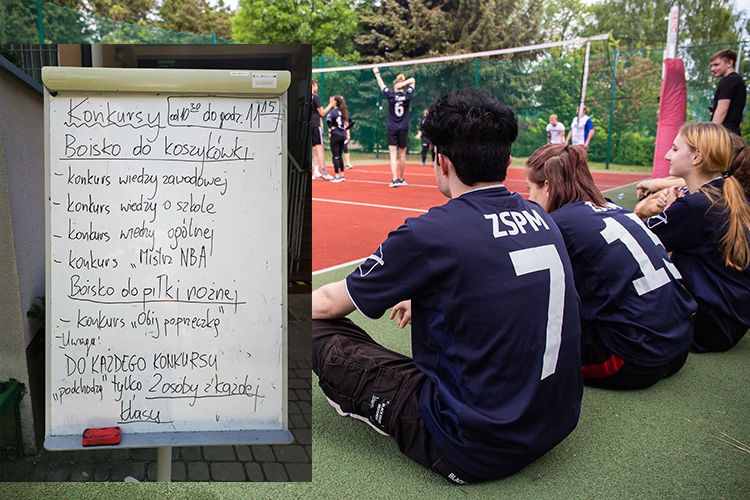 Konkursy od 10³⁰ do godz. 11¹⁵
Boisko do koszykówki
- konkurs wiedzy zawodowej
- konkurs wiedzy o szkole
- konkurs wiedzy ogólnej
- konkurs „Mistrz NBA"
Boisko do piłki nożnej
- konkurs „Obij poprzeczkę"
- Uwaga!
DO KAŻDEGO KONKURSU
"podchodzą" tylko 2 osoby z każdej
klasy
ZSPM
7
6